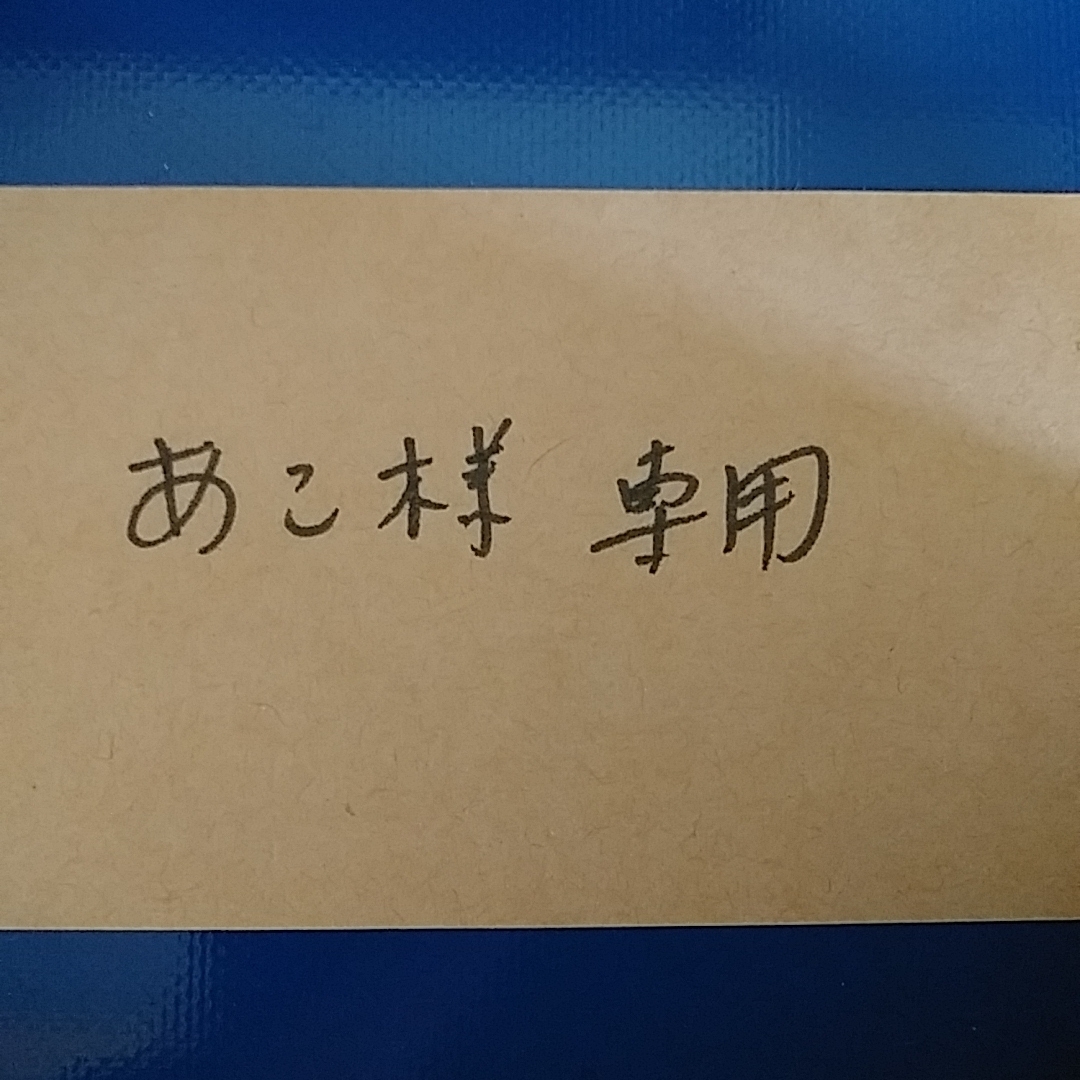 あこ様 専用